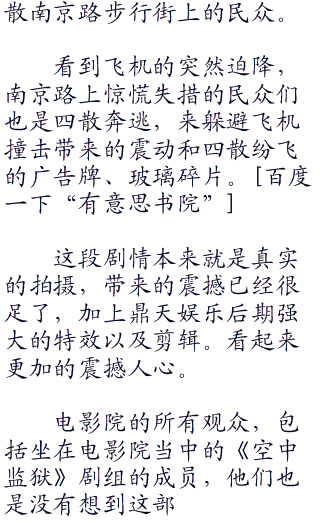 散南京路步行街上的民众。
看到飞机的突然迫降，
南京路上惊慌失措的民众们
也是四散奔逃，来躲避飞机
撞击带来的震动和四散纷飞
的广告牌、玻璃碎片。[百度
一下“有意思书院”]
这段剧情本来就是真实
的拍摄，带来的震撼已经很
足了，加上鼎天娱乐后期强
大的特效以及剪辑。看起来
更加的震撼人心。
电影院的所有观众，包
括坐在电影院当中的《空中
监狱》剧组的成员，他们也
是没有想到这部